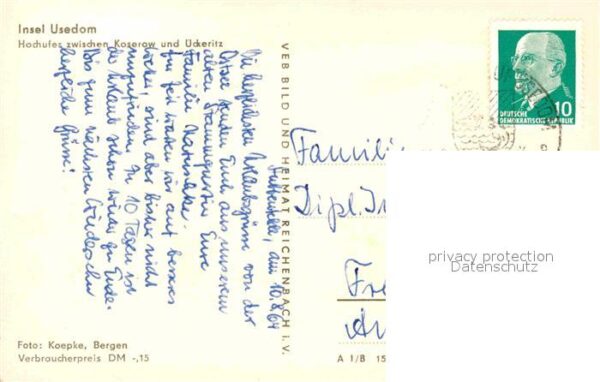 Insel Usedom
Hochufer zwischen Koserow und Ückeritz
am 10.8.64
Die herzlichsten Urlaubsgrüße von der
Ostsee senden Euch aus unserem
alten Stammquartier Eure
Familie
Zur Zeit warten wir auf besseres
Wetter, sind aber bisher nicht
unzufrieden. In 10 Tagen ist
der Urlaub schon wieder zu Ende.
Bis zum nächsten Wiedersehen
herzliche Grüße!
VEB BILD UND HEIMAT REICHENBACH I. V.
Foto: Koepke, Bergen
Verbraucherpreis DM -,15
A 1/B 15
DEUTSCHE
DEMOKRATISCHE REPUBLIK
10
Familie
Dipl. In
Fre
privacy protection
Datenschutz